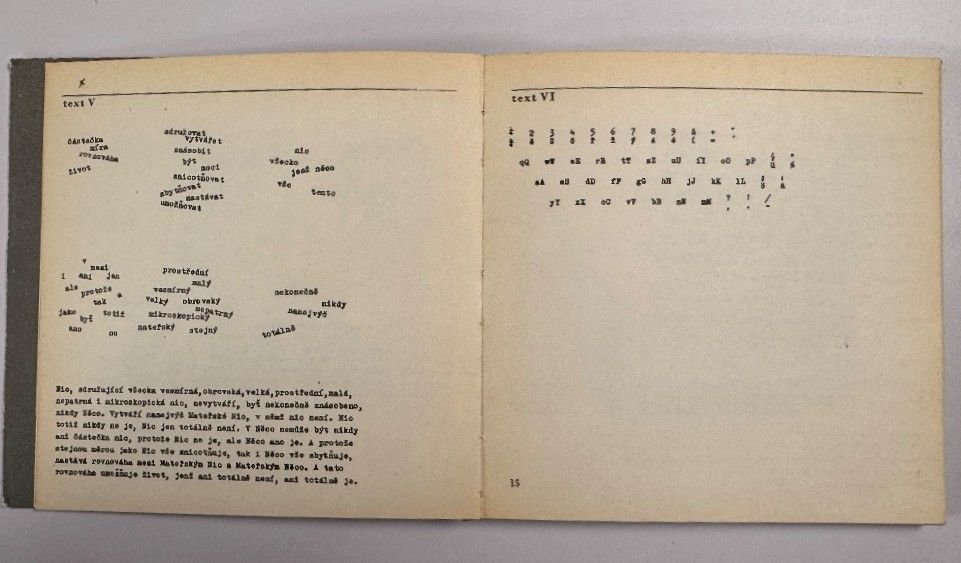 text V
částečka
míra
rovnováha
život
sdružovat
vytvářet
znásobit
být
moci
znicotňovat
zbytňovat
nastávat
umožňovat
nic
všecko
jenž něco
vše
tento
v
mezi
i ani jen
ale protože a
tak
jako totiž
byť
ano ne
prostřední
malý
vesmírný
velký obrovský
nepatrný
mikroskopický
mateřský stejný
nekonečně
nikdy
nanejvýš
totálně
Nic, sdružující všecka vesmírná,obrovská,velká,prostřední,malá,
nepatrná i mikroskopická nic, nevytváří, byť nekonečně znásobeno,
nikdy Něco. Vytváří nanejvýš Mateřské Nic, v němž nic není. Nic
totiž nikdy ne je, Nic jen totálně není. V Něco nemůže být nikdy
ani částečka nic, protože Nic ne je, ale Něco ano je. A protože
stejnou měrou jako Nic vše znicotňuje, tak i Něco vše zbytňuje,
nastává rovnováha mezi Mateřským Nic a Mateřským Něco. A tato
rovnováha umožňuje život, jenž ani totálně není, ani totálně je.
text VI
2 3 4 5 6 7 8 9
ě š č ř ž ý á í é
qQ wW eE rR tT zZ uU iI oO pP
aA sS dD fF gG hH jJ kK lL
yY xX cC vV bB nN mM ? ! /
15